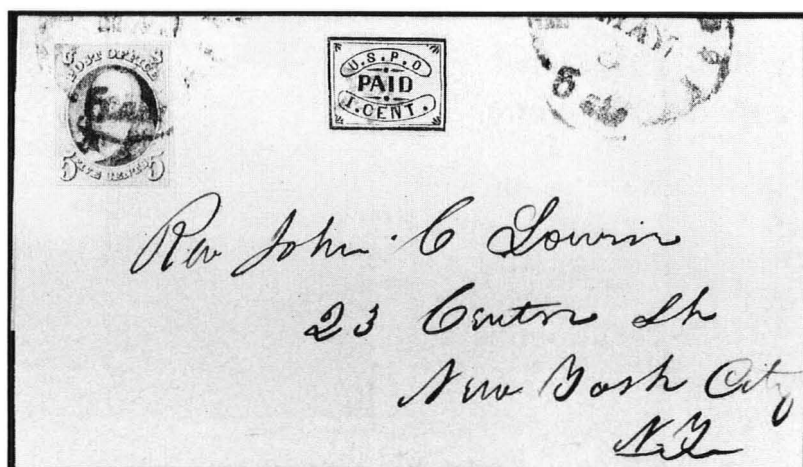 POST OFFICE
FIVE CENTS
5 5
U.S.P.O
PAID
1.CENT.
MAY
5 cts
Rev John C Lowrie
23 Centre St
New York City
N.Y.